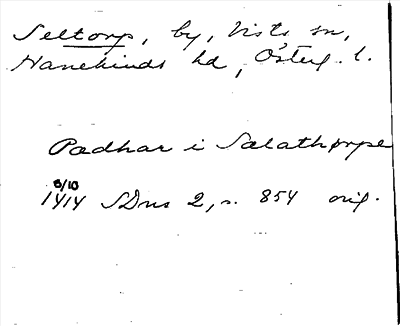 Seltorp, by, Vists sn,
Hanekinds hd, Österg. l.
Pædhar i Salathørpe
8/10
1414 SDns 2, s. 854 orig.